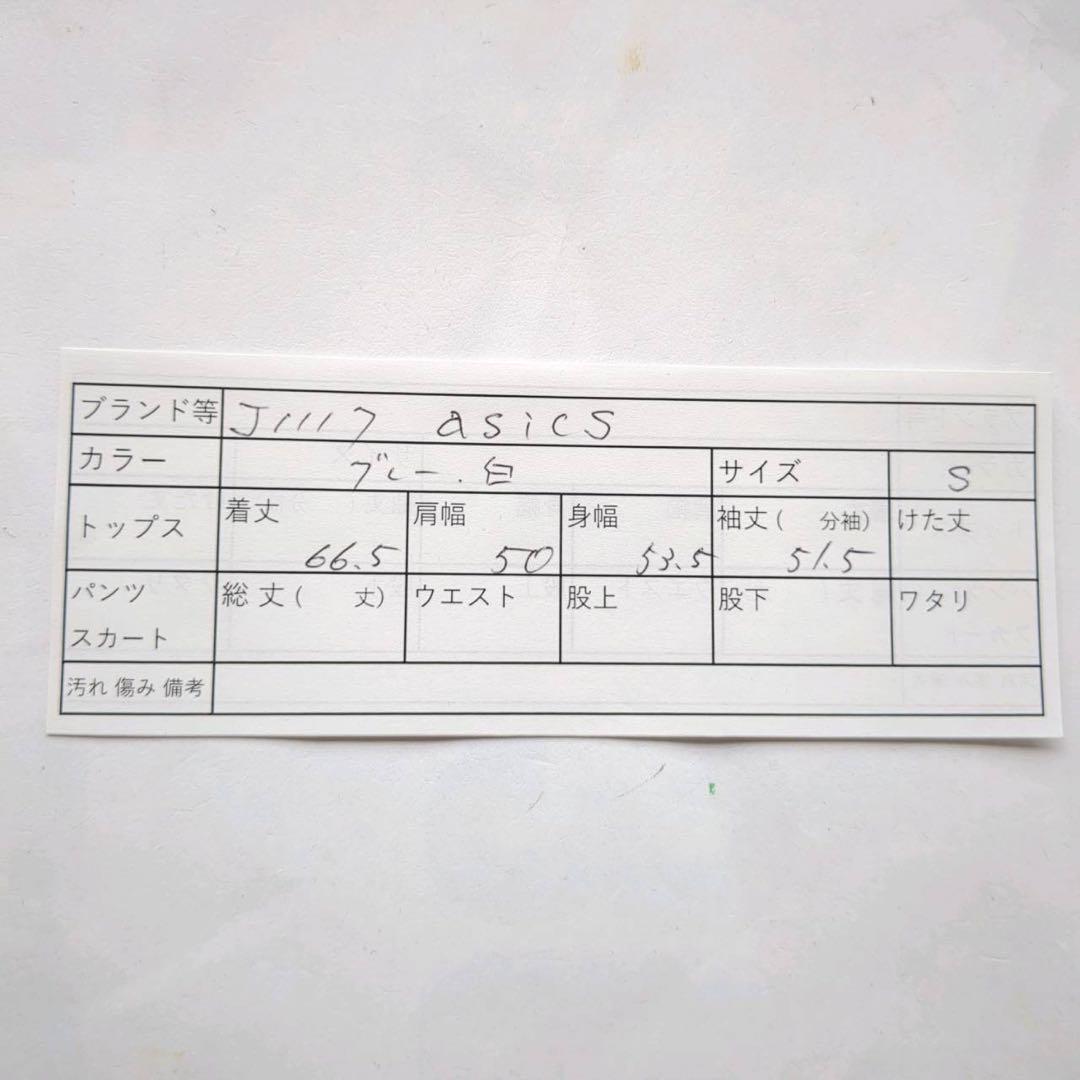 ブランド等 J1117 asics
カラー グレー.白 サイズ S
トップス 着丈 66.5 肩幅 50 身幅 53.5 袖丈( 分袖) 51.5 けた丈
パンツ スカート 総丈( 丈) ウエスト 股上 股下 ワタリ
汚れ 傷み 備考